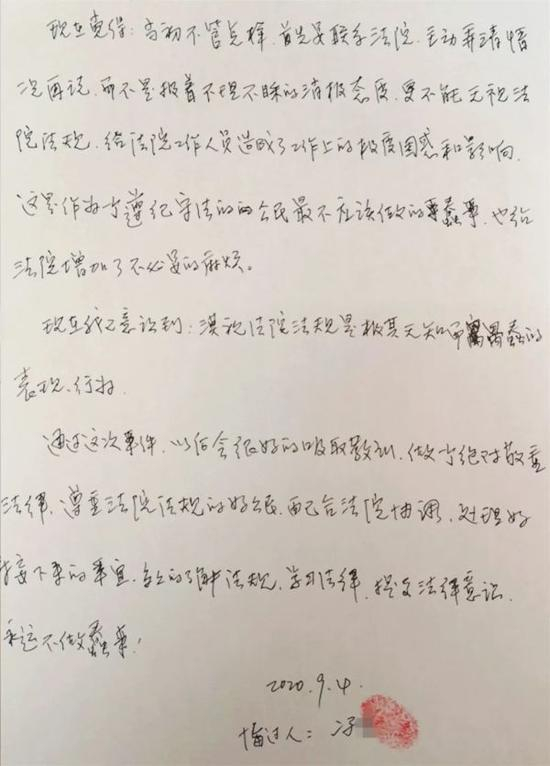 现在觉得：当初不管怎样，首先要联系法院，主动弄清情
况再说，而不是报着不理不睬的消极态度，更不能无视法
院法规，给法院工作人员造成了工作上的极度困惑和影响，
这是作为遵纪守法的公民最不应该做的蠢事，也给
法院增加了不必要的麻烦。
现在我已意识到：漠视法院法规是极其无知而愚蠢的
表现、行为。
通过这次事件，以后会很好的吸取教训，做个绝对敬重
法律，遵重法院法规的好公民，配合法院协调，处理好
接下来的事宜，多的了解法规，学习法律，提高法律意识，
永远不做蠢事！
2020.9.4.
悔过人：冯